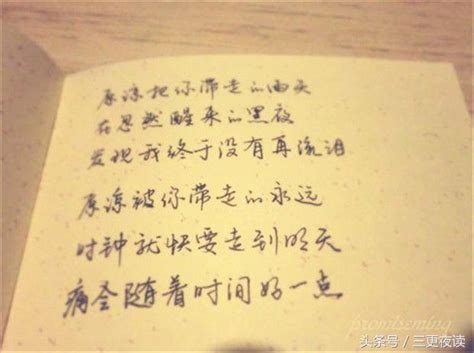 原谅把你带走的雨天
在忽然醒来的黑夜
发现我终于没有再流泪
原谅被你带走的永远
时钟就快要走到明天
痛会随着时间好一点
promiseming
头条号 / 三更夜读